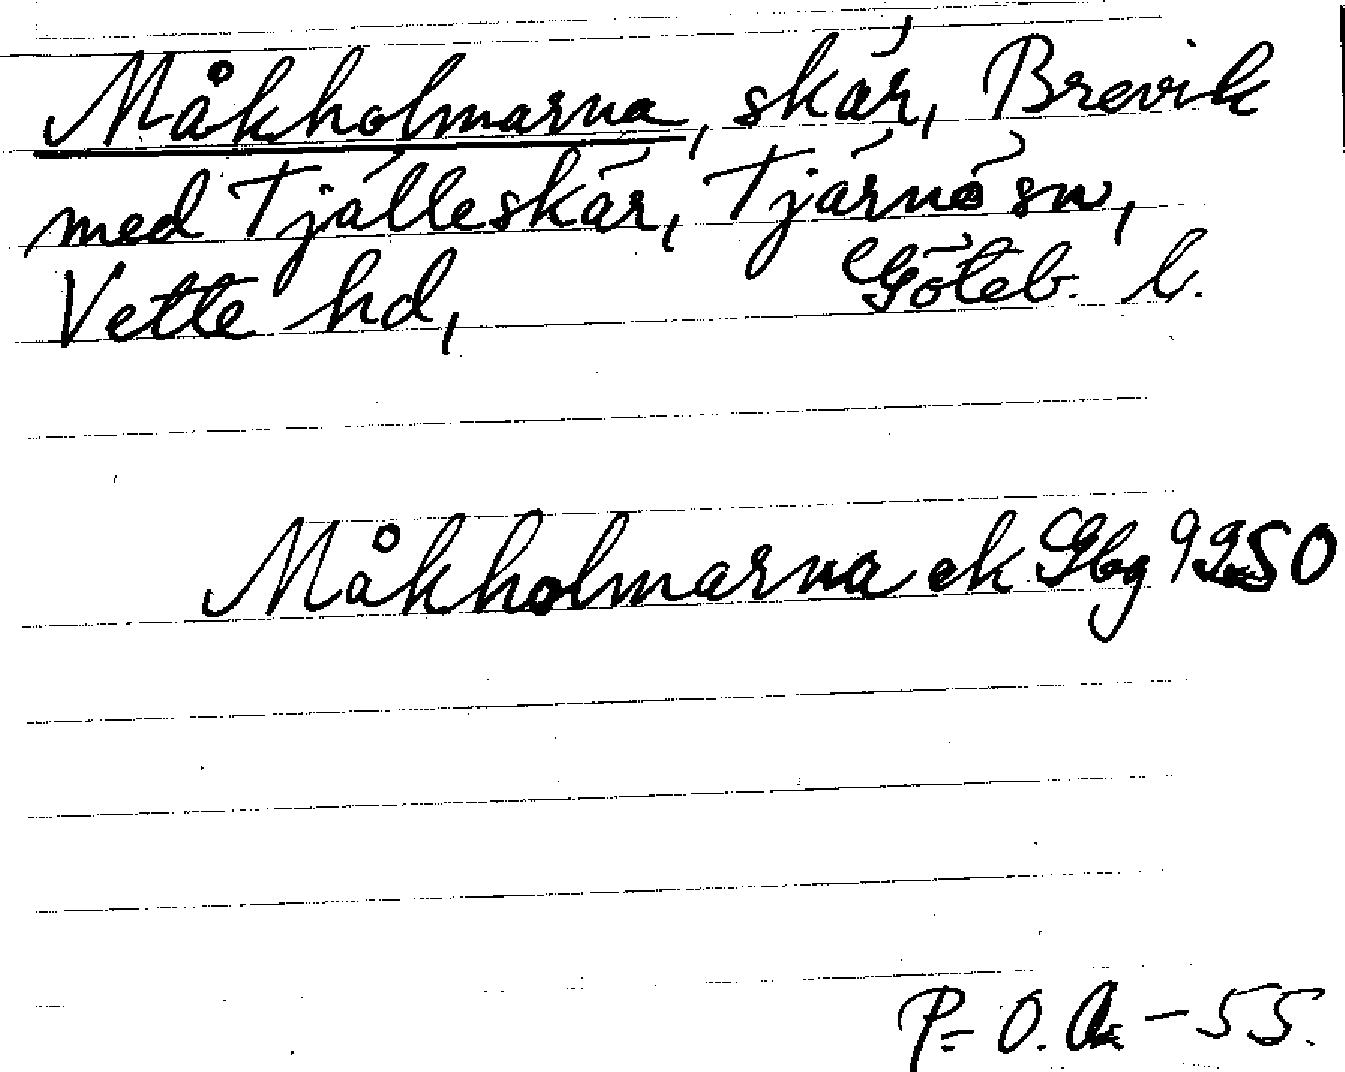 Måkholmarna, skär, Brevik
med Tjälleskär, Tjärnö sn,
Vette hd, Göteb. l.
Måkholmarna ek Gbg 9250
P.O. -55.